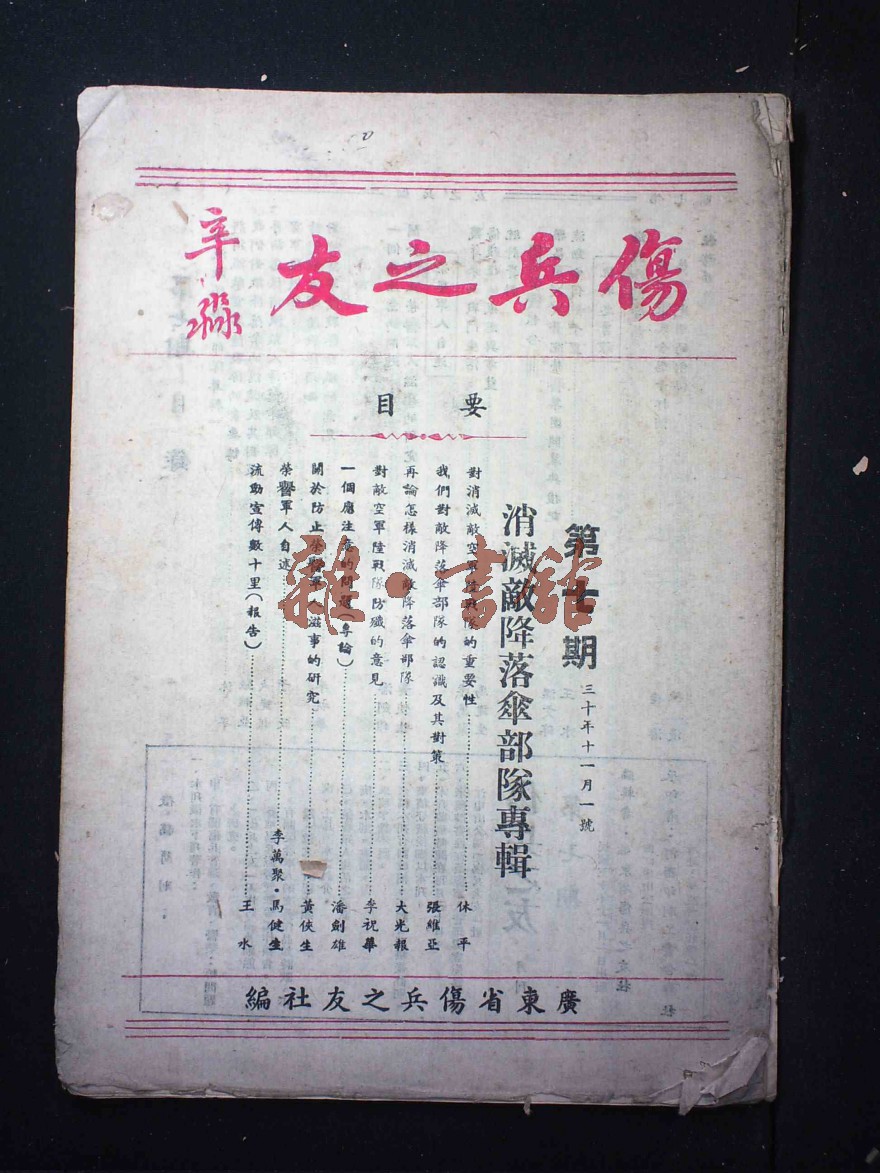 傷兵之友
辛淼
要目
第七期
三十年十一月一號
消滅敵降落傘部隊專輯
對消滅敵空軍陸戰隊的重要性……休平
我們對敵降落傘部隊的認識及其對策……張維亞
再論怎樣消滅敵降落傘部隊……大光報
對敵空軍陸戰隊防殲的意見……李祝華
一個應注意的問題(專論)……潘劍雄
關於防止榮譽軍人滋事的研究……黃俠生
榮譽軍人自述……李萬聚·馬健生
流動宣傳數十里(報告)……王水
廣東省傷兵之友社編
雜·書館